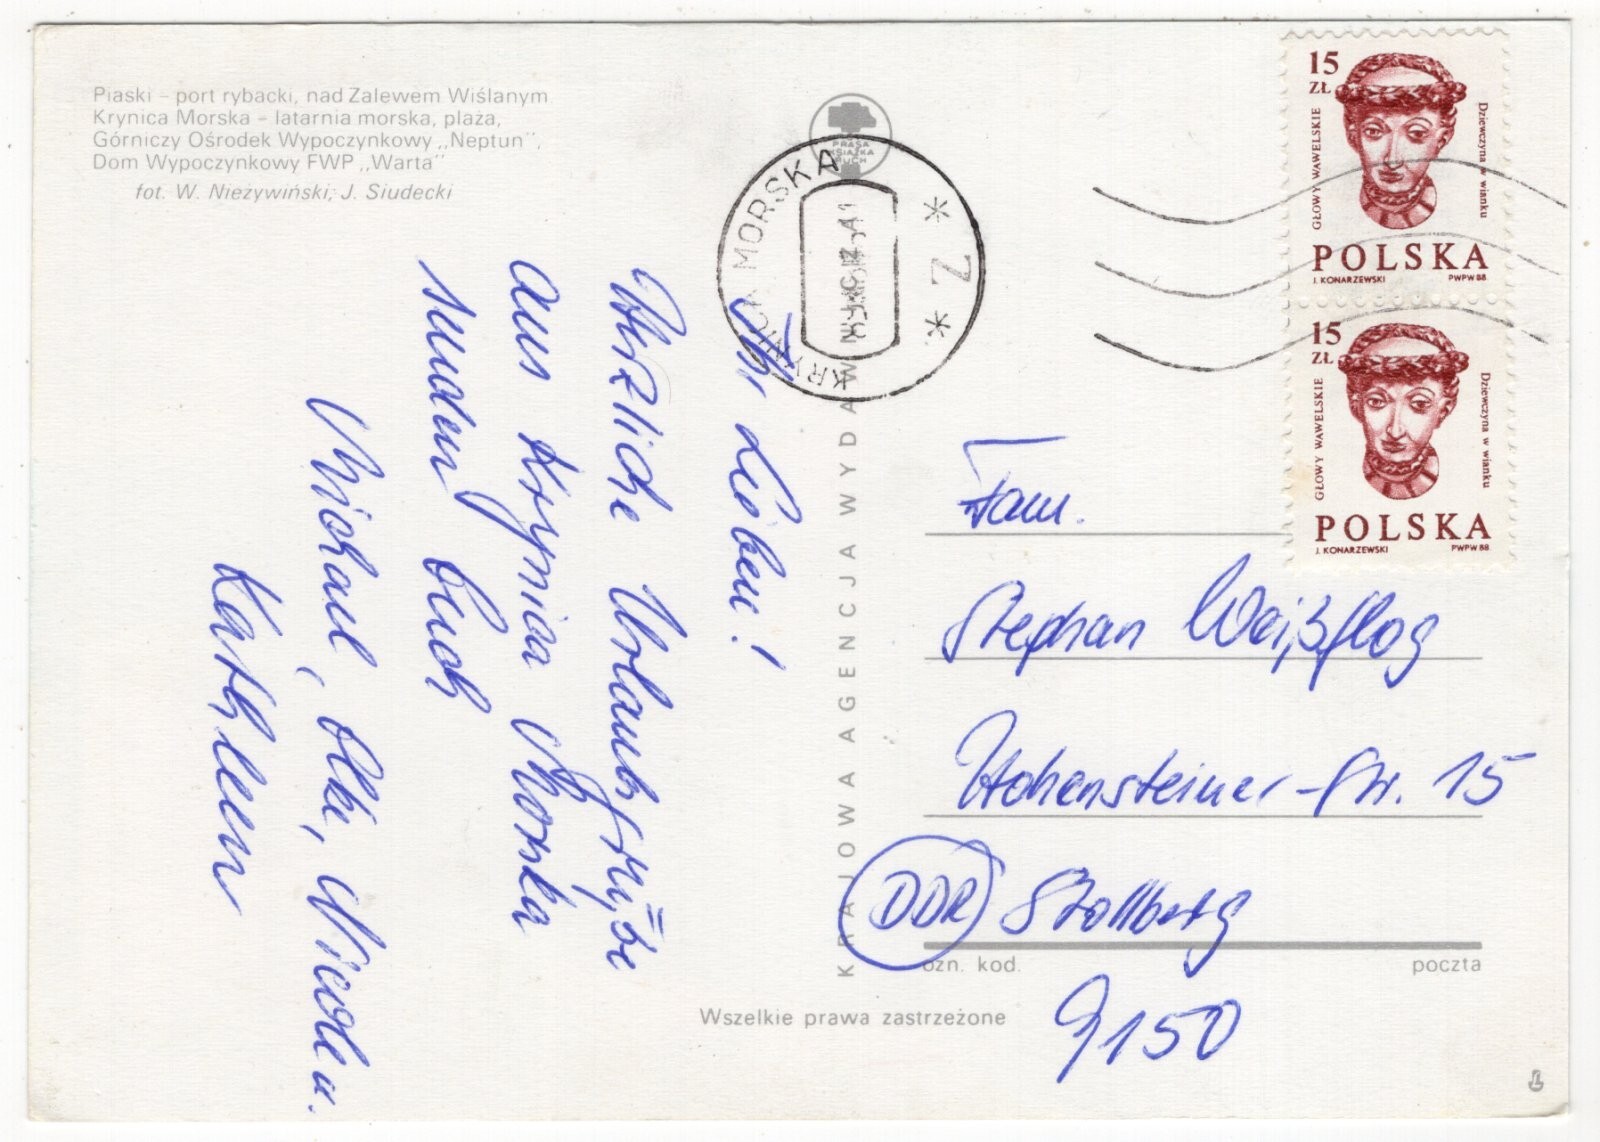 Piaski – port rybacki, nad Zalewem Wiślanym
Krynica Morska – latarnia morska, plaża,
Górniczy Ośrodek Wypoczynkowy „Neptun”,
Dom Wypoczynkowy FWP „Warta”
fot. W. Nieżywiński, J. Siudecki
Ihr Lieben!
Herzliche Urlaubsgrüße
aus Krynica Morska
senden Euch
Michael, Elke, Nicole u.
Kathleen
PRASA
KSIĄŻKA
RUCH
KRYNICA MORSKA
* Z *
KRAJOWA AGENCJA WYDAWNICZA
15
ZŁ
GŁOWY WAWELSKIE
Dziewczyna w wianku
POLSKA
J. KONARZEWSKI PWPW 88
15
ZŁ
GŁOWY WAWELSKIE
Dziewczyna w wianku
POLSKA
J. KONARZEWSKI PWPW 88
Fam.
Stephan Weißflog
Hohensteiner-Str. 15
DDR Stollberg
ozn. kod. poczta
9150
Wszelkie prawa zastrzeżone